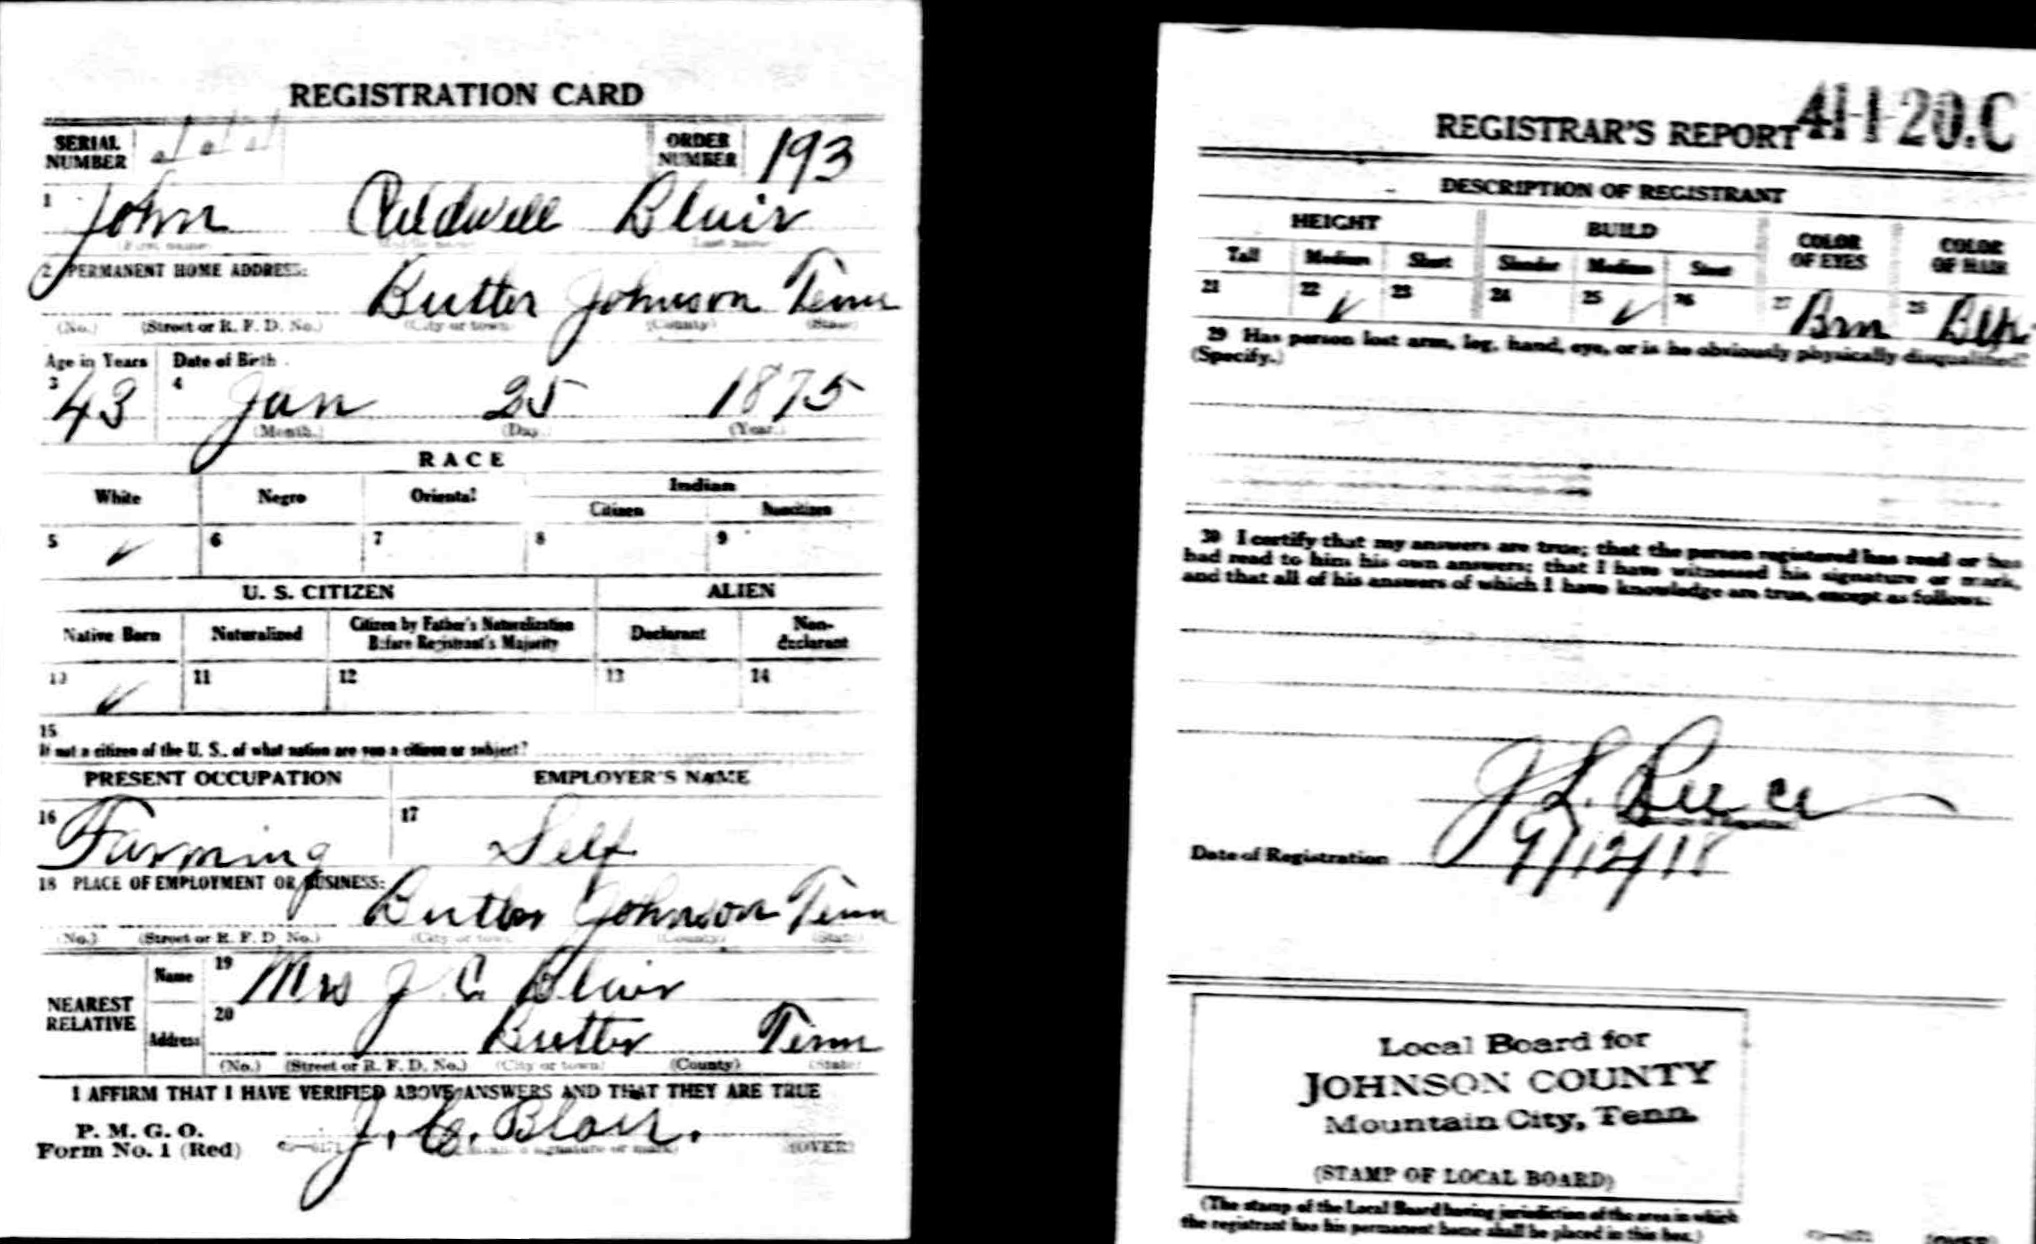 REGISTRATION CARD
SERIAL NUMBER
ORDER NUMBER 193
1 John Caldwell Blair
(First name) (Middle name) (Last name)
2 PERMANENT HOME ADDRESS:
Butler Johnson Tenn
(No.) (Street or R. F. D. No.) (City or town) (County) (State)
Age in Years Date of Birth
3 43 4 Jan 25 1875
(Month.) (Day.) (Year.)
RACE
White Negro Oriental Indian
Citizen Noncitizen
5 ✓ 6 7 8 9
U. S. CITIZEN ALIEN
Native Born Naturalized Citizen by Father's Naturalization Before Registrant's Majority Declarant Non-declarant
10 ✓ 11 12 13 14
15
If not a citizen of the U. S., of what nation are you a citizen or subject?
PRESENT OCCUPATION EMPLOYER'S NAME
16 Farming 17 Self
18 PLACE OF EMPLOYMENT OR BUSINESS:
Butler Johnson Tenn
(No.) (Street or R. F. D. No.) (City or town) (County) (State)
NEAREST RELATIVE
Name 19 Mrs J C Blair
Address 20 Butler Tenn
(No.) (Street or R. F. D. No.) (City or town) (County) (State)
I AFFIRM THAT I HAVE VERIFIED ABOVE ANSWERS AND THAT THEY ARE TRUE
P. M. G. O.
Form No. 1 (Red) J. C. Blair.
(Registrant's signature or mark) (OVER)
REGISTRAR'S REPORT 41-1-20.C
DESCRIPTION OF REGISTRANT
HEIGHT BUILD COLOR OF EYES COLOR OF HAIR
Tall Medium Short Slender Medium Stout
21 22 ✓ 23 24 25 ✓ 26 27 Brn 28 Blk
29 Has person lost arm, leg, hand, eye, or is he obviously physically disqualified?
(Specify.)
30 I certify that my answers are true; that the person registered has read or has
had read to him his own answers; that I have witnessed his signature or mark,
and that all of his answers of which I have knowledge are true, except as follows:
J L. Reece
Date of Registration 9/12/18
Local Board for
JOHNSON COUNTY
Mountain City, Tenn.
(STAMP OF LOCAL BOARD)
(The stamp of the Local Board having jurisdiction of the area in which
the registrant has his permanent home shall be placed in this box.)
(OVER)